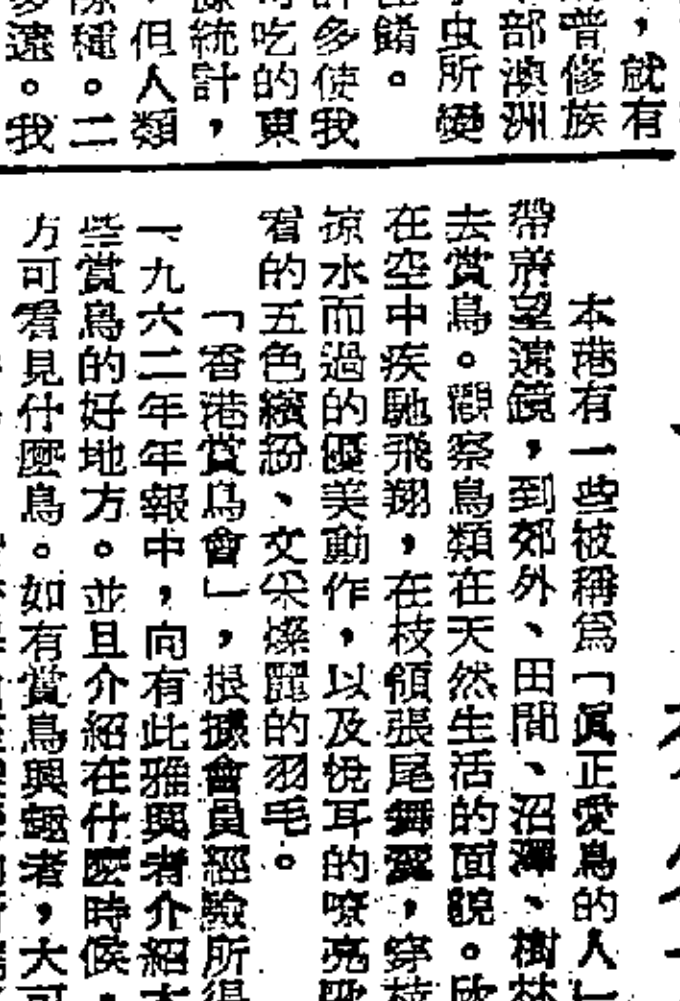 ，就有
普修族
部澳洲
虫所變
餚。
多使我
吃的東
統計，
但人類
種。二
遠。我
本港有一些被稱爲「眞正愛鳥的人」
帶齊望遠鏡，到郊外、田間、沼澤、樹林
去賞鳥。觀察鳥類在天然生活的面貌。欣
在空中疾馳飛翔，在枝頭張尾舞翼，穿枝
掠水而過的優美動作，以及悅耳的嘹亮歌
看的五色繽紛、文采燦麗的羽毛。
「香港賞鳥會」，根據會員經驗所得
一九六二年年報中，向有此雅興者介紹本
些賞鳥的好地方。並且介紹在什麼時候，
方可看見什麼鳥。如有賞鳥興趣者，大可